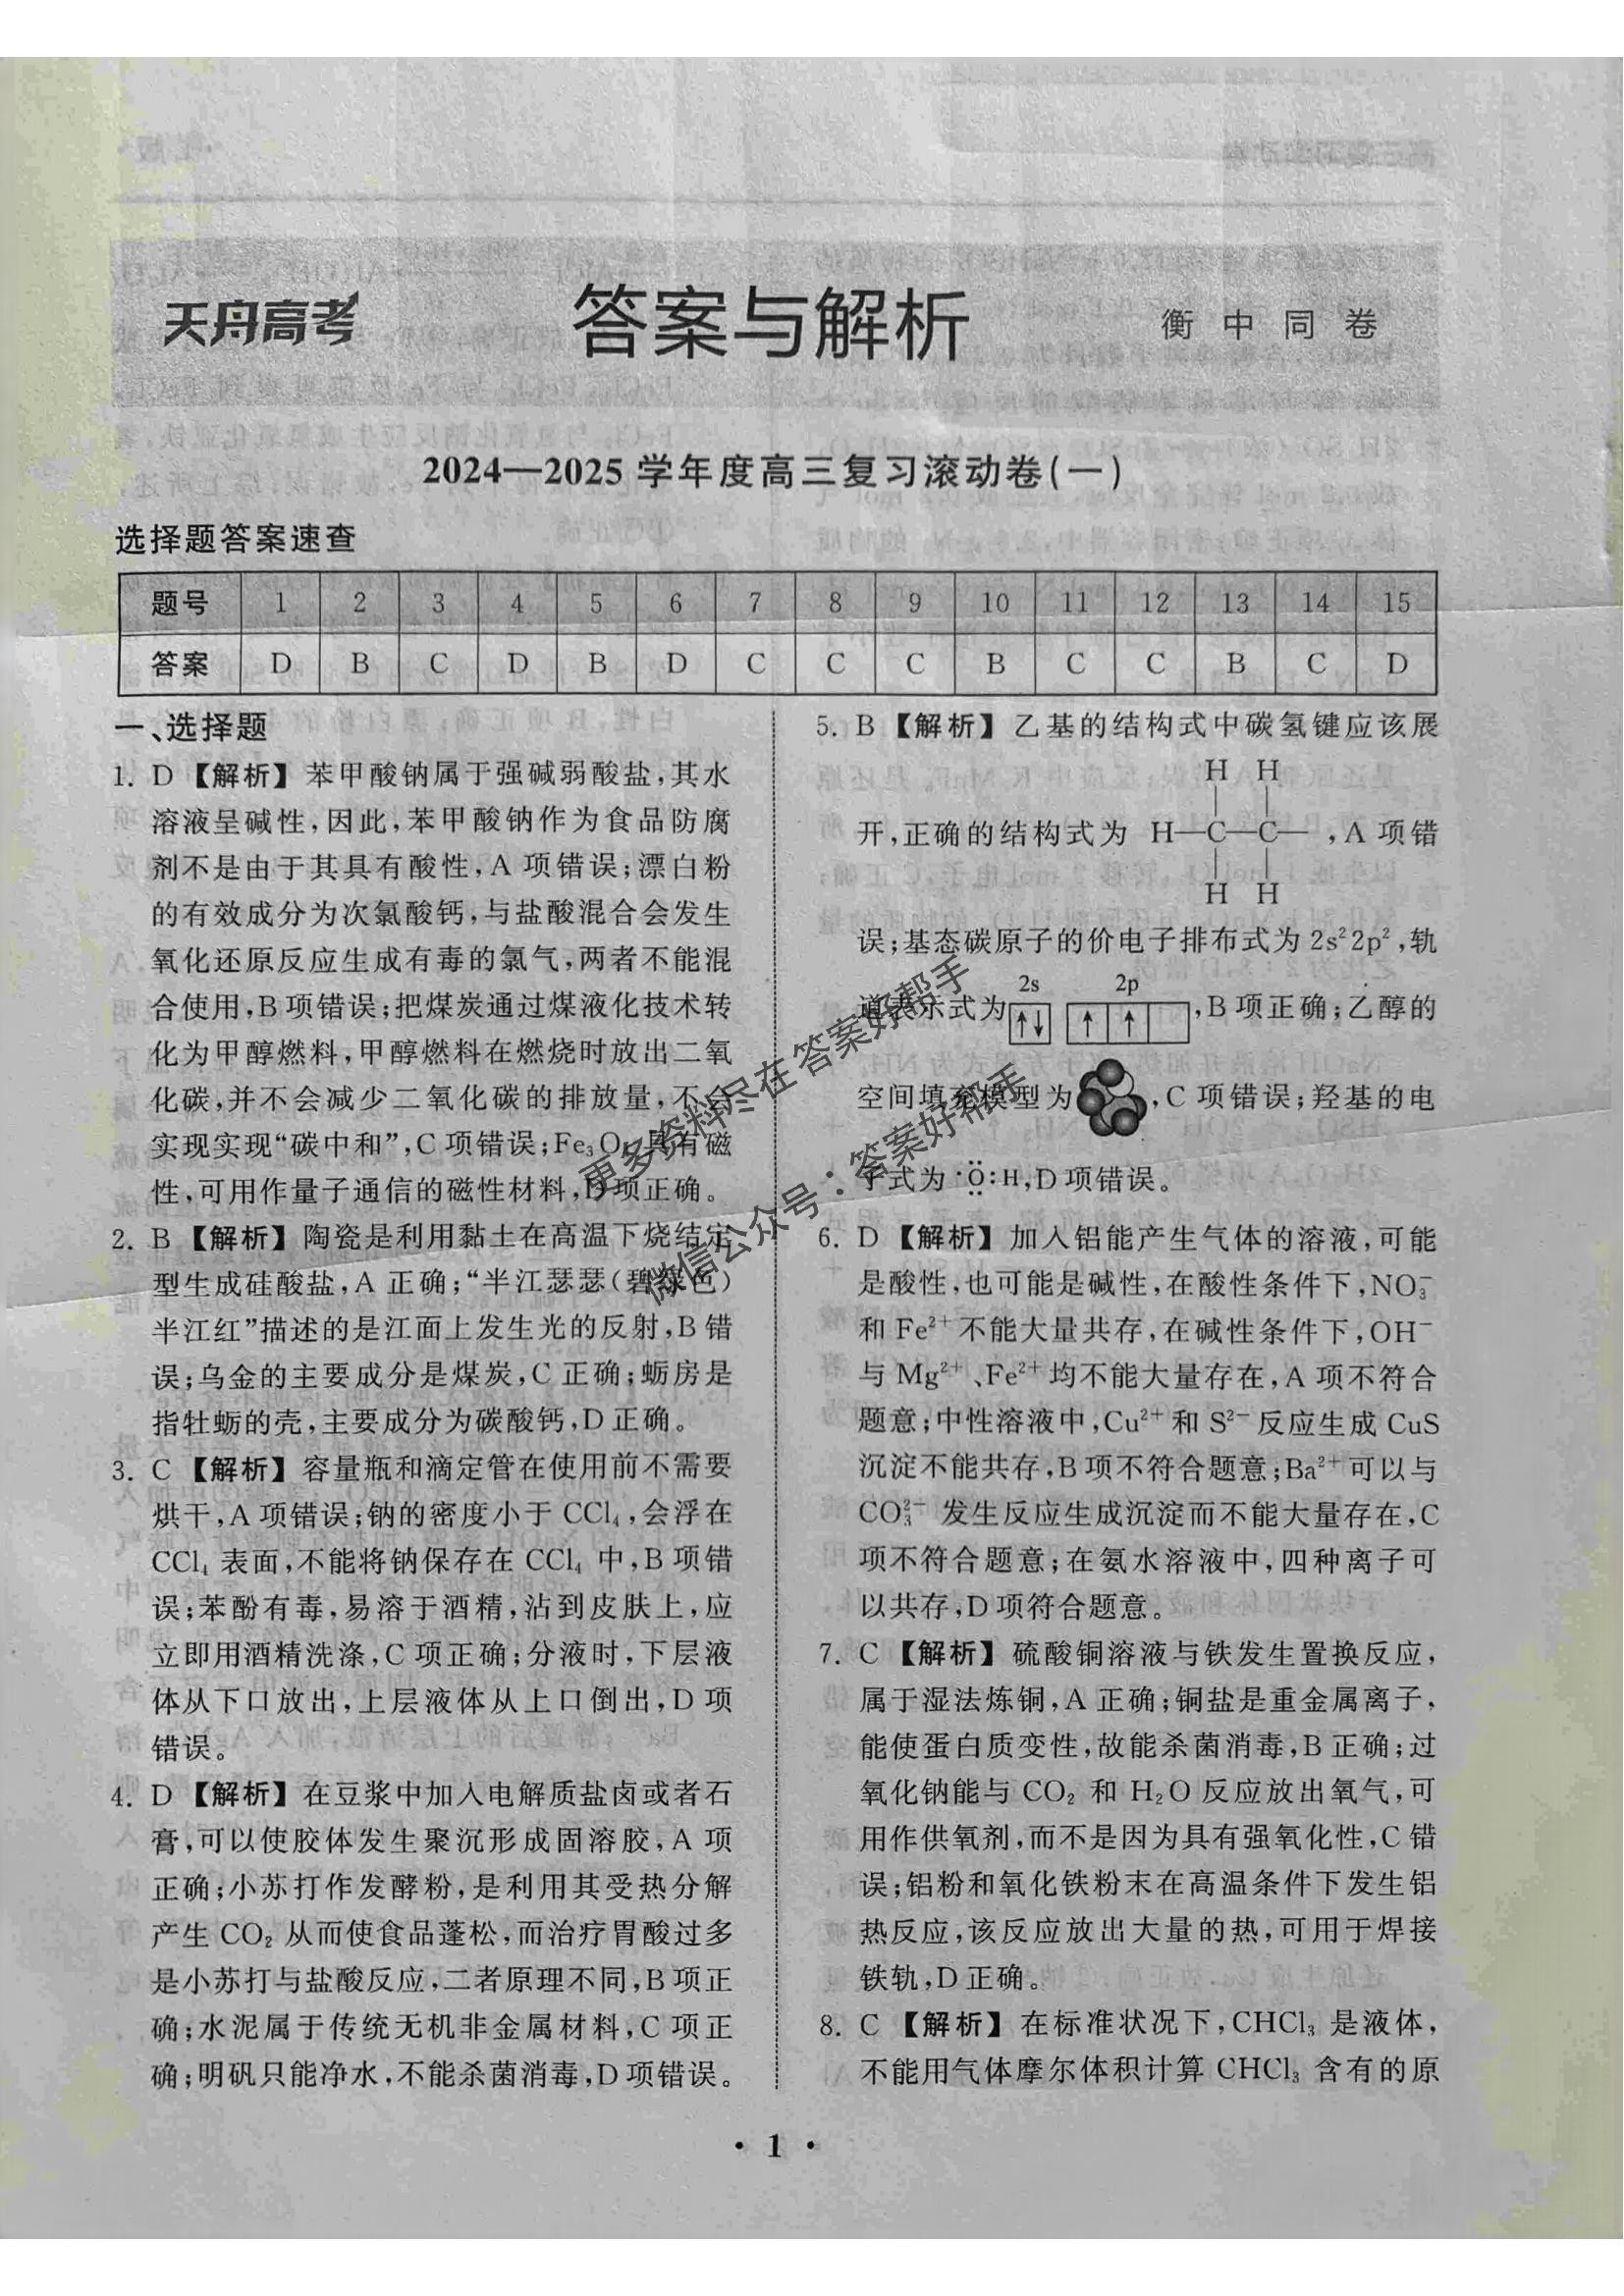 天舟高考
答案与解析
衡中同卷
2024—2025学年度高三复习滚动卷(一)
选择题答案速查
题号 1 2 3 4 5 6 7 8 9 10 11 12 13 14 15
答案 D B C D B D C C C B C C B C D
一、选择题
1. D【解析】苯甲酸钠属于强碱弱酸盐,其水
溶液呈碱性,因此,苯甲酸钠作为食品防腐
剂不是由于其具有酸性,A项错误;漂白粉
的有效成分为次氯酸钙,与盐酸混合会发生
氧化还原反应生成有毒的氯气,两者不能混
合使用,B项错误;把煤炭通过煤液化技术转
化为甲醇燃料,甲醇燃料在燃烧时放出二氧
化碳,并不会减少二氧化碳的排放量,不会
实现实现“碳中和”,C项错误;Fe₃O₄具有磁
性,可用作量子通信的磁性材料,D项正确。
2. B【解析】陶瓷是利用黏土在高温下烧结定
型生成硅酸盐,A正确;“半江瑟瑟(碧绿色)
半江红”描述的是江面上发生光的反射,B错
误;乌金的主要成分是煤炭,C正确;蛎房是
指牡蛎的壳,主要成分为碳酸钙,D正确。
3. C【解析】容量瓶和滴定管在使用前不需要
烘干,A项错误;钠的密度小于CCl₄,会浮在
CCl₄表面,不能将钠保存在CCl₄中,B项错
误;苯酚有毒,易溶于酒精,沾到皮肤上,应
立即用酒精洗涤,C项正确;分液时,下层液
体从下口放出,上层液体从上口倒出,D项
错误。
4. D【解析】在豆浆中加入电解质盐卤或者石
膏,可以使胶体发生聚沉形成固溶胶,A项
正确;小苏打作发酵粉,是利用其受热分解
产生CO₂从而使食品蓬松,而治疗胃酸过多
是小苏打与盐酸反应,二者原理不同,B项正
确;水泥属于传统无机非金属材料,C项正
确;明矾只能净水,不能杀菌消毒,D项错误。
5. B【解析】乙基的结构式中碳氢键应该展
H H
开,正确的结构式为 H—C—C— ,A项错
H H
误;基态碳原子的价电子排布式为2s²2p²,轨
2s 2p
道表示式为[↑↓] [↑][↑][ ],B项正确;乙醇的
空间填充模型为 ,C项错误;羟基的电
子式为·Ö:H,D项错误。
6. D【解析】加入铝能产生气体的溶液,可能
是酸性,也可能是碱性,在酸性条件下,NO₃⁻
和Fe²⁺不能大量共存,在碱性条件下,OH⁻
与Mg²⁺、Fe²⁺均不能大量存在,A项不符合
题意;中性溶液中,Cu²⁺和S²⁻反应生成CuS
沉淀不能共存,B项不符合题意;Ba²⁺可以与
CO₃²⁻发生反应生成沉淀而不能大量存在,C
项不符合题意;在氨水溶液中,四种离子可
以共存,D项符合题意。
7. C【解析】硫酸铜溶液与铁发生置换反应,
属于湿法炼铜,A正确;铜盐是重金属离子,
能使蛋白质变性,故能杀菌消毒,B正确;过
氧化钠能与CO₂和H₂O反应放出氧气,可
用作供氧剂,而不是因为具有强氧化性,C错
误;铝粉和氧化铁粉末在高温条件下发生铝
热反应,该反应放出大量的热,可用于焊接
铁轨,D正确。
8. C【解析】在标准状况下,CHCl₃是液体,
不能用气体摩尔体积计算CHCl₃含有的原
更多资料尽在答案好帮手
微信公众号:答案好帮手
· 1 ·